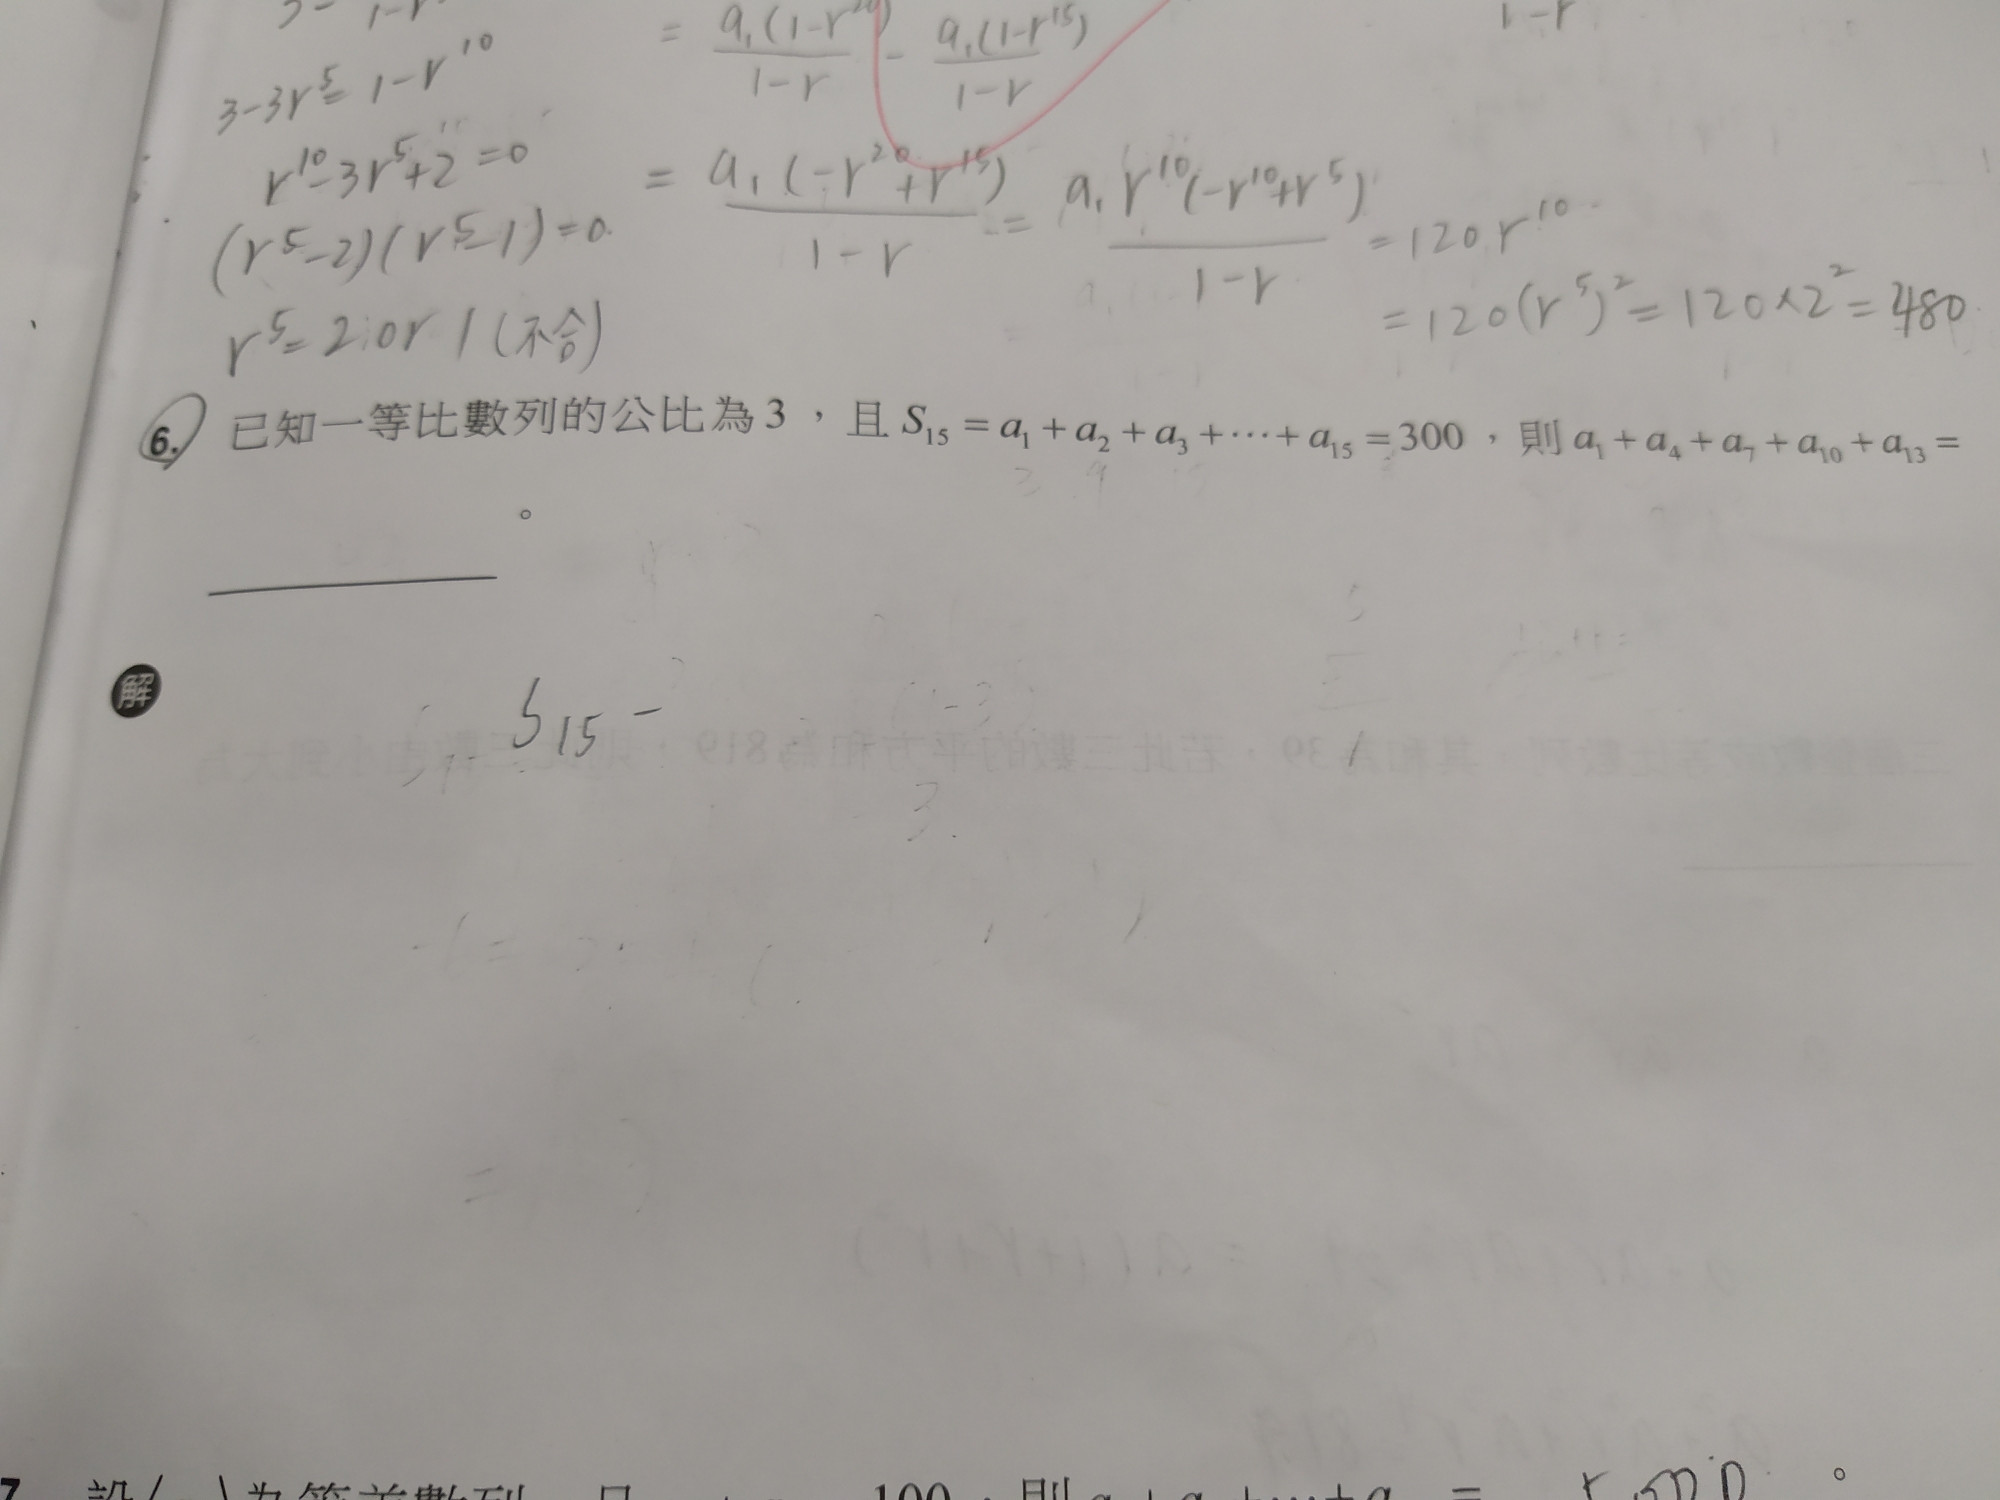 3-3r⁵=1-r¹⁰
r¹⁰-3r⁵+2=0
(r⁵-2)(r⁵-1)=0
r⁵=2 or 1(不合)
= a₁(1-r²⁰)/(1-r) - a₁(1-r¹⁵)/(1-r)
= a₁(-r²⁰+r¹⁵)/(1-r) = a₁r¹⁰(-r¹⁰+r⁵)/(1-r) =120r¹⁰
=120(r⁵)²=120×2²=480
1-r
6. 已知一等比數列的公比為3，且S₁₅=a₁+a₂+a₃+⋯+a₁₅=300，則a₁+a₄+a₇+a₁₀+a₁₃=
。
解
S₁₅ -